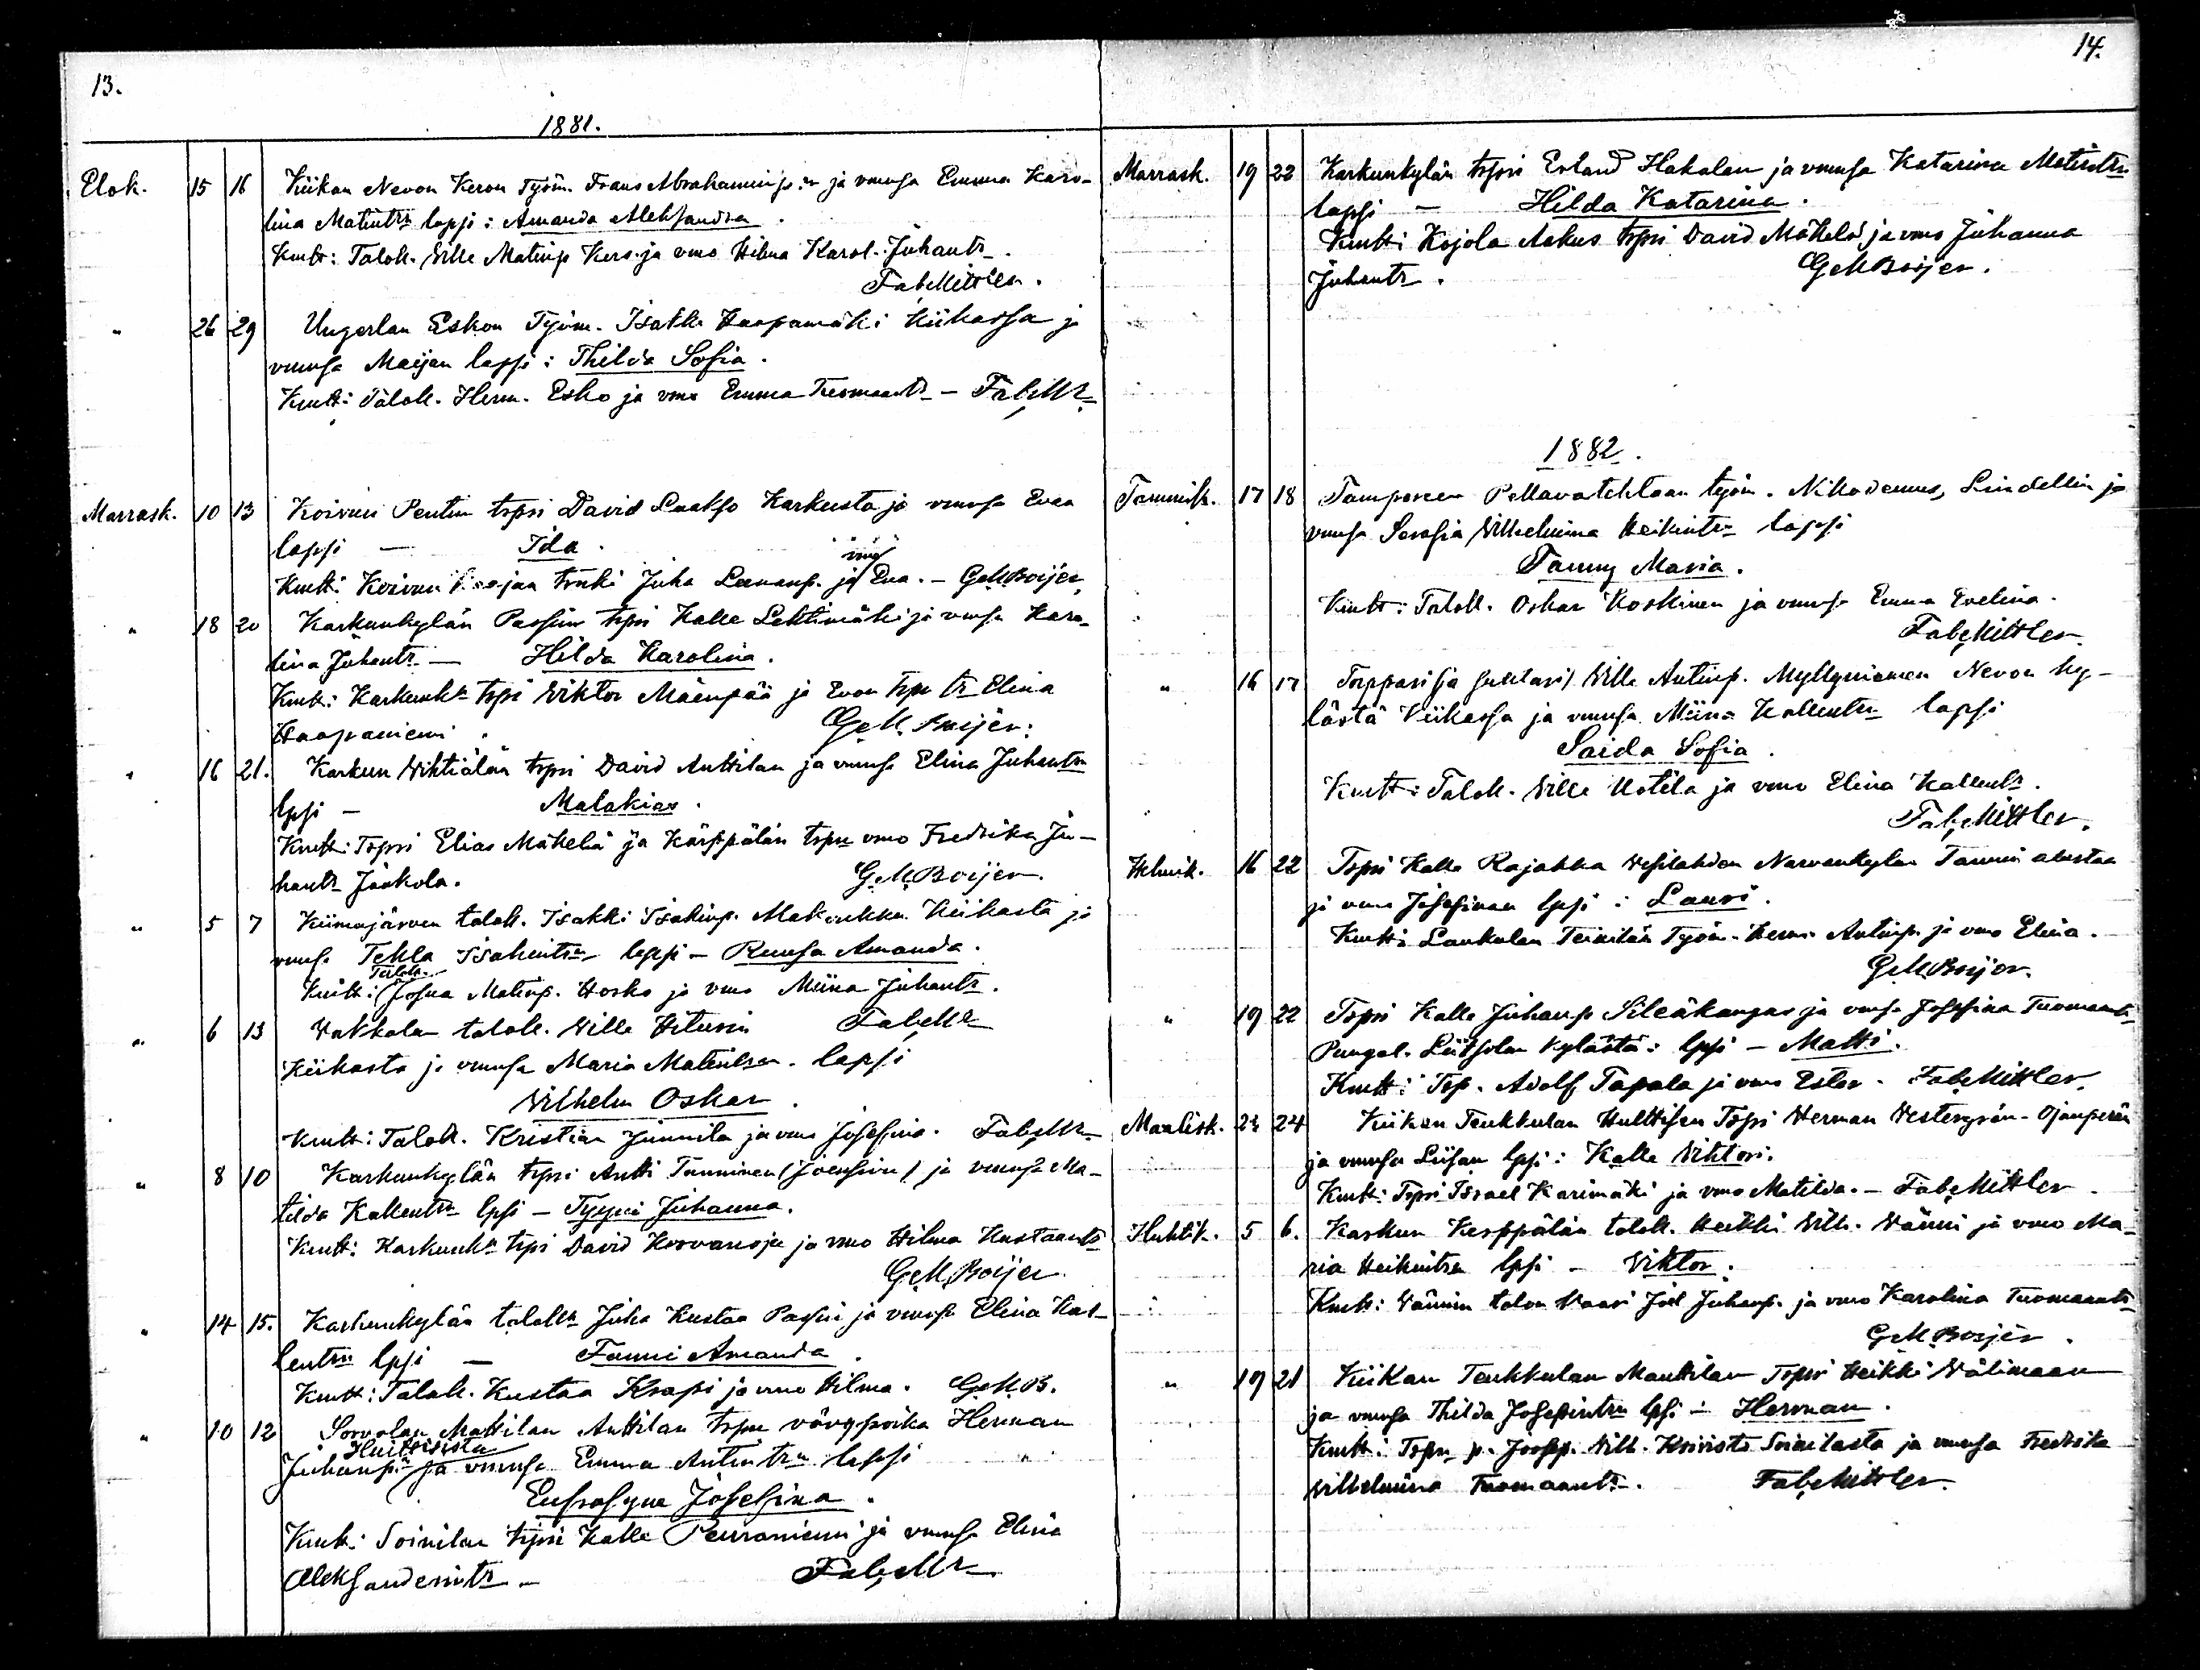 13.
1881.
Elok. 15 16 Kiikan Nevon Keron Työm. Frans Abrahaminp:n ja vmnsa Emma Karo-
lina Matintrn lapsi: Amanda Aleksandra.
Kmtt: Talok. Wille Matinp Kero ja vmo Hilma Karol. Juhantr.
Fab. Mittler.
" 26 29 Ungerlan Eskon Työm. Isakki Haapamäki Kiikassa ja
vmnsa Maijan lapsi: Thilda Sofia.
Kmtt: Talok. Herm. Esko ja vmo Emma Tuomaantr. - Fab. Mr.
Marrask. 10 13 Koivun Pentin trpri David Laakso Karkusta ja vmnsa Eva
lapsi — Ida.
Kmtt: Koivun trnki Juha Leenanp. ja vmo Eva. - G.M. Boijer.
" 18 20 Karkunkylän Passin trpri Kalle Lehtimäki ja vmsa Karo-
lina Juhantr. — Hilda Karolina.
Kmtt: Karkunk:n trpri Wiktor Mäenpää ja Evon trpn tr. Elina
Haapaniemi. G.M. Boijer.
" 16 21. Karkun Wihtiälän trpri David Anttilan ja vmnsa Elina Juhantrn
lpsi — Malakias.
Kmtt: Trpri Elias Mäkelä ja Kärppälän trpn vmo Fredrika Ju-
hantr Jaakola. G.M. Boijer.
" 5 7 Kiimajärven talok. Isakki Isakinp. Kiikasta ja
vmnsa Tekla Isakintrn lapsi - Ruusa Amanda.
Kmtt: Talok. Josua Matinp. Hosko ja vmo Miina Juhantr.
" 6 13 Wakkalan talok. Wille Hiturin Fab. Mr
Kiikasta ja vmnsa Maria Matintren. lapsi
Wilhelm Oskar.
Kmtt: Talok. Kristian Junnila ja vmo Josefina. Fab. Mr.
" 8 10 Karkunkylän trpri Antti Tanninen (Joensuu) ja vmnsa Ma-
tilda Kallentrn lpsi - Tyyni Juhanna.
Kmtt: Karkunk:n trpri David Korvanoja ja vmo Hilma Kustaantr
G.M. Boijer.
" 14 15. Karkunkylän talok:n Juha Kustaa Passi ja vmnsa Elina Kal-
lentrn lpsi — Fanni Amanda.
Kmtt: Talok. Kustaa Krapi ja vmo Hilma. G.M.B.
" 10 12 Sorvolan Mattilan Anttilan trpn vävypoika Herman
Juhanp:n Huittisista ja vmnsa Emma Antintrn lapsi
Eufrosyne Josefina.
Kmtt: Soinilan trpri Kalle Peuraniemi ja vmnsa Elina
Aleksanderintr. — Fab. Mr
14.
Marrask. 19 22 Karkunkylän trpri Erland Hakalan ja vmnsa Katarina Matintrn
lapsi — Hilda Katarina.
Kmtt: Kojola Aakus trpri David Mäkelä ja vmo Juhanna
Juhantr. G.M. Boijer.
1882.
Tammik. 17 18 Tampereen Pellavatehtaan työm. Nikodemus Lindellin ja
vmnsa Serafia Wilhelmina Heikintrn lapsi
Fanny Maria.
Kmtt: Talok. Oskar Koskinen ja vmnsa Emma Evelina.
Fab. Mittler.
" 16 17 Torppari (ja suutari) Wille Antinp. Myllyniemen Nevon ky-
lästä Kiikassa ja vmnsa Miina Kallentrn lapsi
Saida Sofia.
Kmtt: Talok. Wille Uotila ja vmo Elina Kallentr.
Fab. Mittler.
Helmik. 16 22 Trpri Kalle Rajakka Wesilahden Narvankylän Tannin alustaa
ja vmo Josefinan lpsi: Lauri.
Kmtt: Laukulan Työm. Herm. Antinp. ja vmo Elina.
G.M. Boijer.
" 19 22 Trpri Kalle Juhanp Sileäkangas ja vmnsa Josefina Tuomaantr.
Pungal. Liitsolan kylästä: lpsi — Matti.
Kmtt: Trp. Adolf Tapala ja vmo Ester. Fab. Mittler.
Maalisk. 22 24 Kiikan Teukkulan Trpri Herman Westergrén-Ojanperän
ja vmnsa Liisan lpsi: Kalle Wiktori.
Kmtt: Trpri Israel Karimäki ja vmo Matilda. - Fab. Mittler.
Huhtik. 5 6. Karkun Kerppälän talok. Heikki Wilh. Wänni ja vmo Ma-
ria Heikintren lpsi - Viktor.
Kmtt: Wännin talon vaari Joel Juhanp. ja vmo Karolina Tuomaantr.
G.M. Boijer.
" 19 21 Kiikan Teukkulan Manttilan Trpri Heikki Wälimaan
ja vmnsa Thilda Josefintrn lpsi - Herman.
Kmtt: Trpn p. Joosep. Wilh. Koivisto Soinilasta ja vmnsa Fredrika
Wilhelmina Tuomaantr. Fab. Mittler.